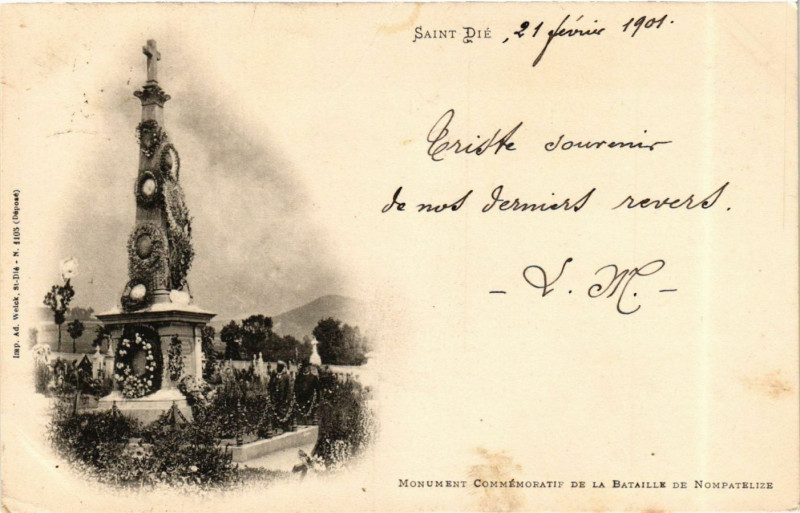 SAINT DIÉ, 21 février 1901.
Triste souvenir
de nos derniers revers.
- L. M. -
MONUMENT COMMÉMORATIF DE LA BATAILLE DE NOMPATELIZE
Imp. Ad. Weick, St-Dié - N. 1105 (Déposé)